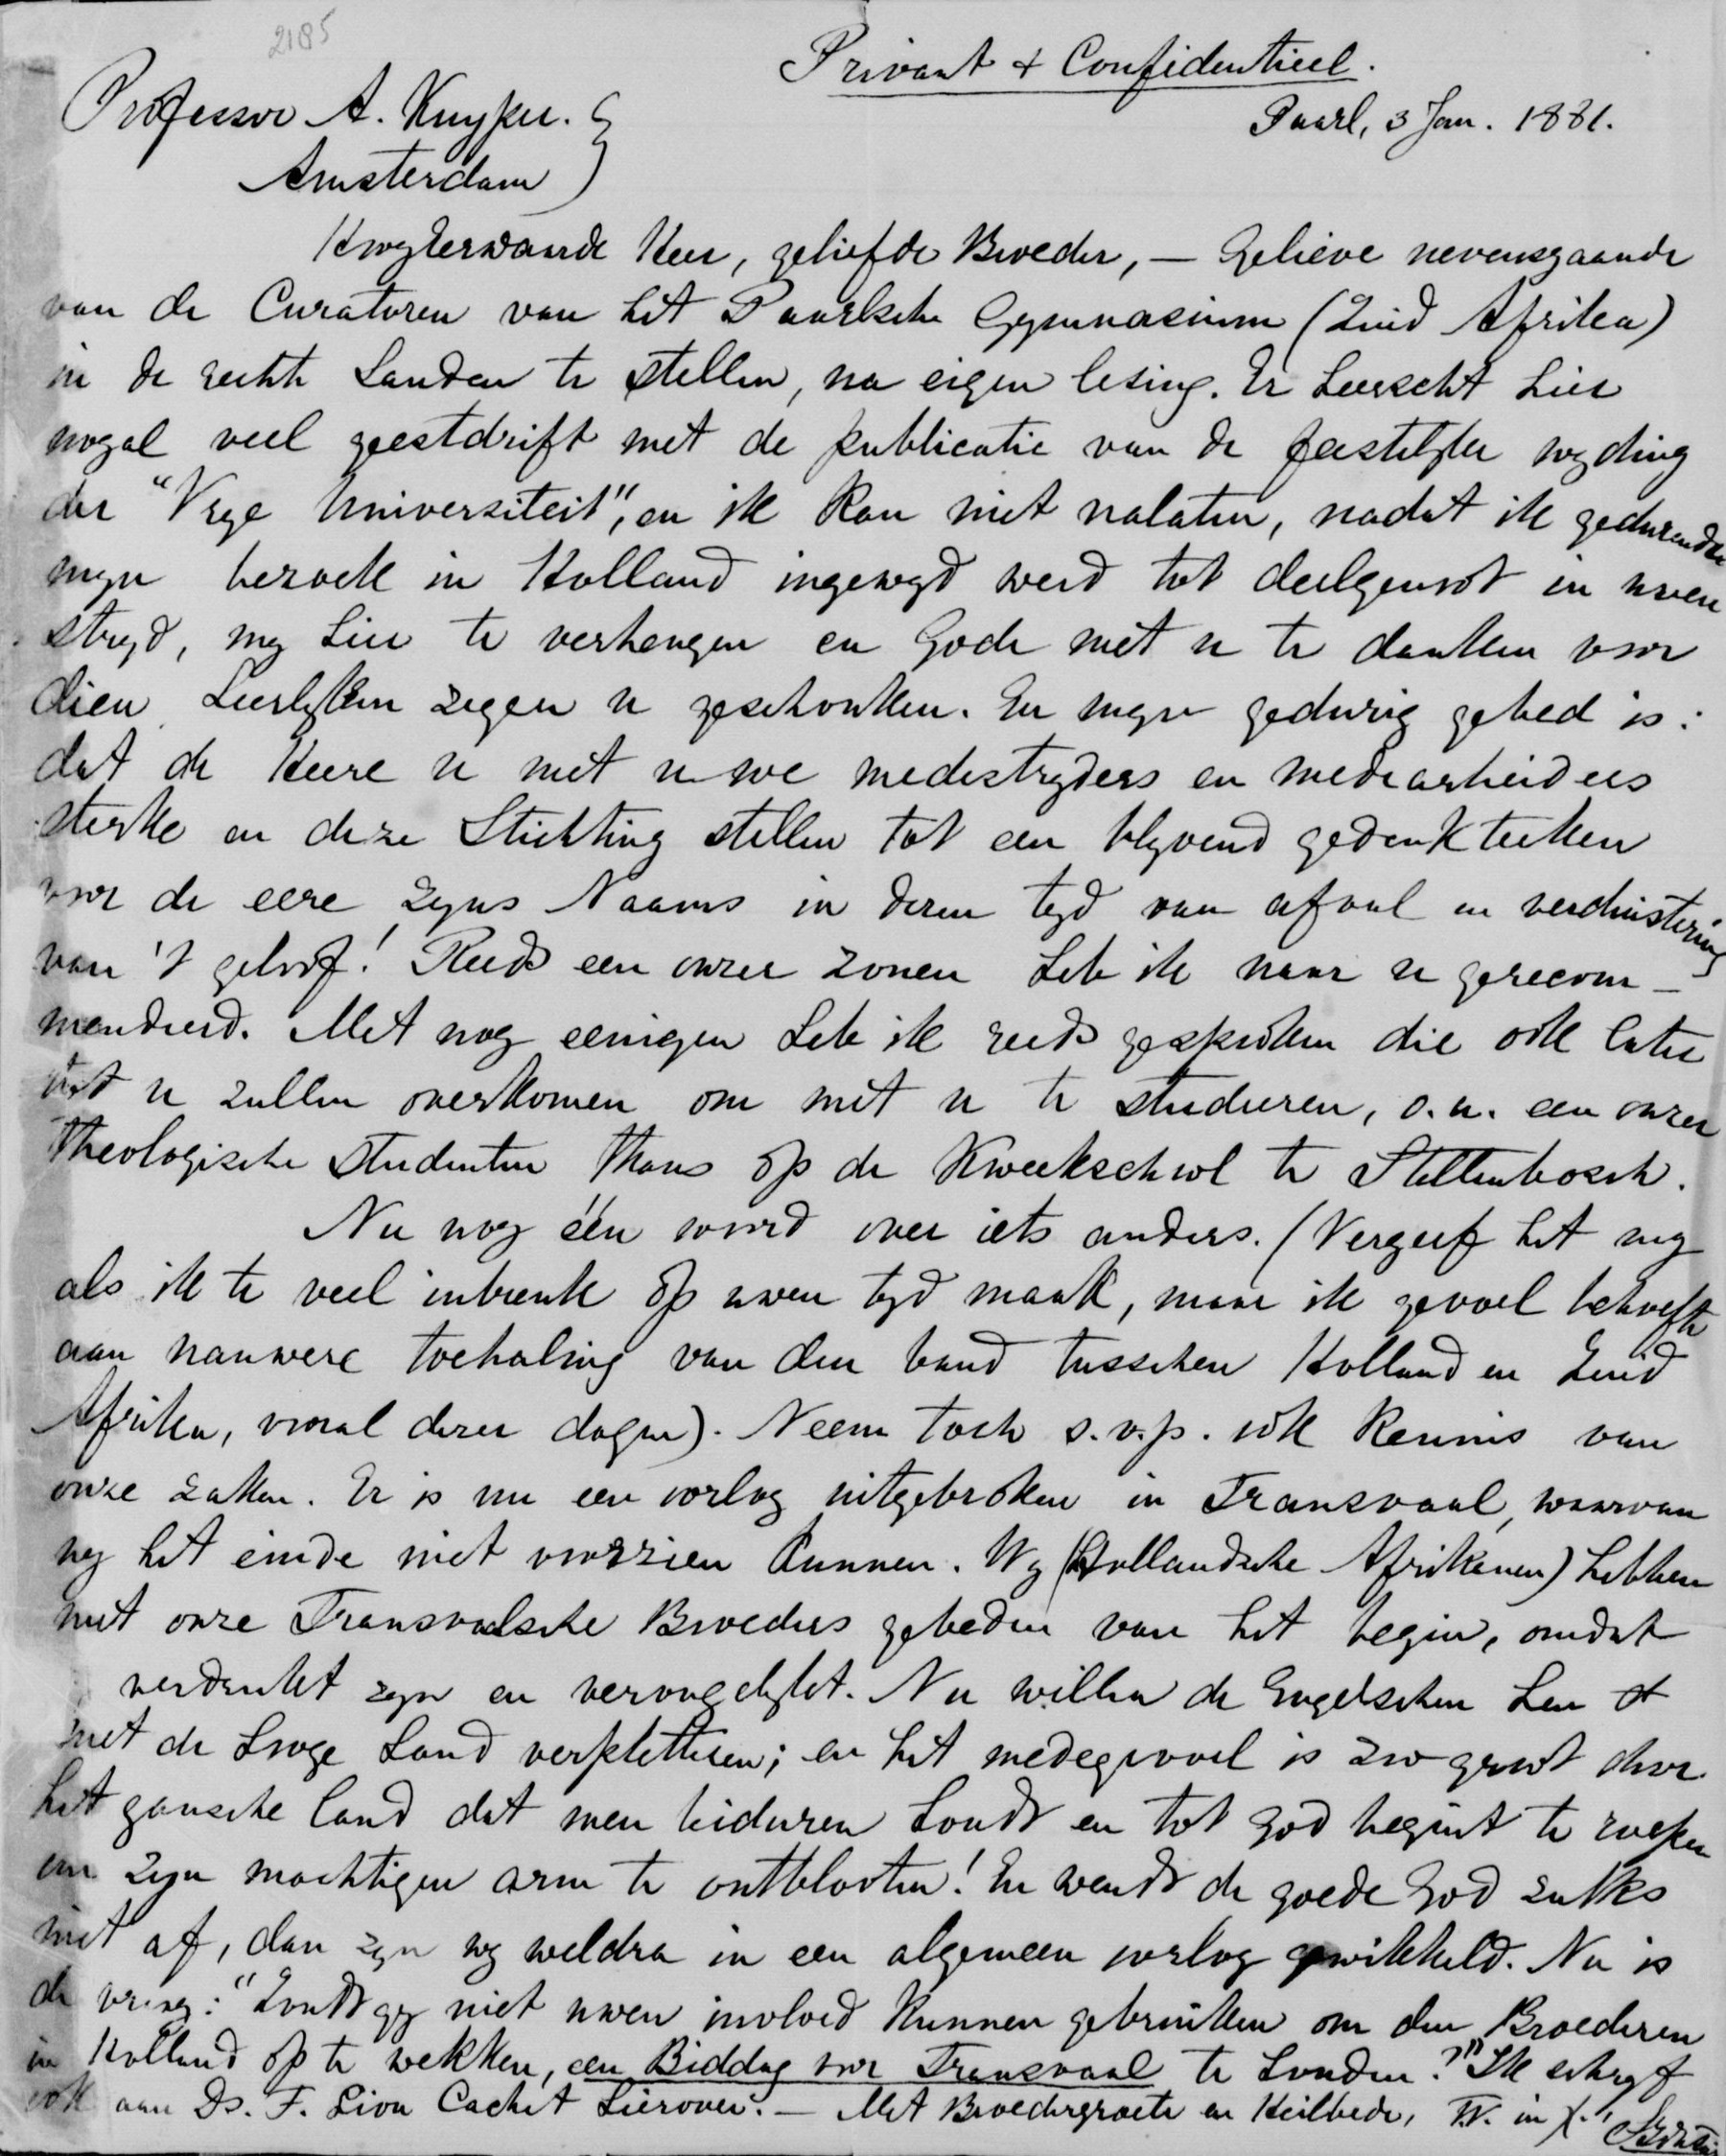 2185
Privaat + Confidentieel.
Professor A. Kuyper.
Paarl, 3 Jan. 1881.
Amsterdam
Hoogeerwaarde Heer, geliefde Broeder, — Gelieve nevensgaande
van de Curatoren van het Paarlsche Gymnasium (Zuid Afrika)
in de rechte handen te stellen, na eigen lezing. Er heerscht hier
nogal veel geestdrift met de publicatie van de feestelyke wyding
der "Vrye Universiteit", en ik kan niet nalaten, nadat ik gedurende
myn bezoek in Holland ingewyd werd tot deelgenoot in uwen
stryd, my hier te verheugen en Gode met u te danken voor
dien heerlyken zegen u geschonken. En myn gedurig gebed is:
dat de Heere u met uwe medestryders en medearbeiders
sterke en deze Stichting stellen tot een blyvend gedenkteeken
voor de eere Zyns Naams in dezen tyd van afval en verduistering
van 't geloof! Reeds een onzer zonen heb ik naar u gerecom-
mandeerd. Met nog eenigen heb ik reeds gesproken die ook later
tot u zullen overkomen om met u te studeeren, o.a. een onzer
Theologische studenten thans op de Kweekschool te Stellenbosch.
Nu nog één woord over iets anders. (Vergeef het my
als ik te veel inbreuk op uwen tyd maak, maar ik gevoel behoefte
aan nauwere toehaling van den band tusschen Holland en Zuid
Afrika, vooral dezer dagen). Neem toch s.v.p. ook kennis van
onze zaken. Er is nu een oorlog uitgebroken in Transvaal, waarvan
wy het einde niet voorzien kunnen. Wy (Hollandsche Afrikanen) hebben
met onze Transvaalsche Broeders geleden van het begin, omdat
verdrukt zyn en verongelykt. Nu willen de Engelschen hen
met de hooge hand verpletteren; en het medegevoel is zoo groot door
het gansche land dat men biduren houdt en tot God begint te roepen
om Zyn machtigen arm te ontblooten! En wendt de goede God zulks
niet af, dan zyn wy weldra in een algemeen oorlog gewikkeld. Nu is
de vraag: "Zoudt gy niet uwen invloed kunnen gebruiken om den Broederen
in Holland op te wekken, een Biddag voor Transvaal te houden?" Ik schryf
ook aan Ds. F. Lion Cachet hierover. — Met Broedergroete en Heilbede, Uw. in X.